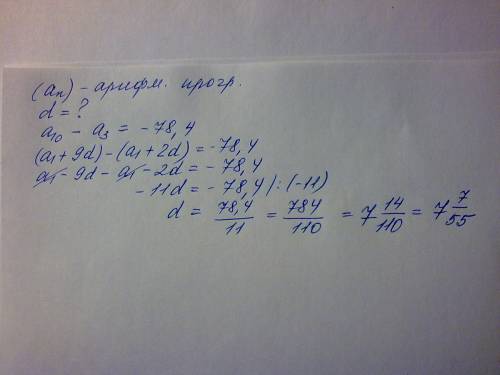 (aₙ) - арифм. прогр.
d = ?
a₁₀ - a₃ = -78,4
(a₁ + 9d) - (a₁ + 2d) = -78,4
a₁ - 9d - a₁ - 2d = -78,4
-11d = -78,4 | : (-11)
d = 78,4/11 = 784/110 = 7 14/110 = 7 7/55